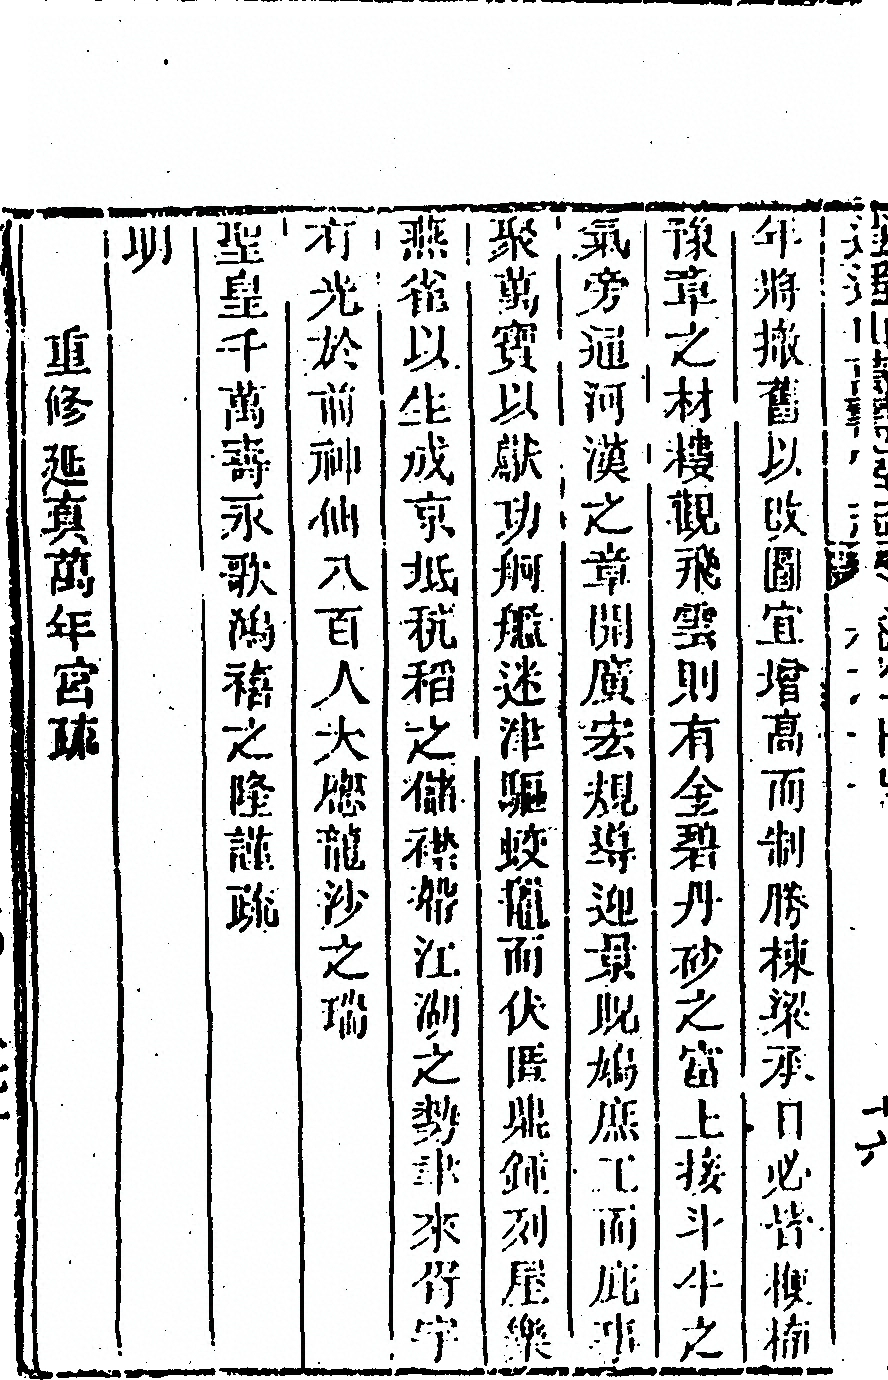 年將撤舊以改圖宜增高而制勝棟梁承日必皆楩楠
豫章之材樓觀飛雲則有金碧丹砂之富上接斗牛之
氣旁通河漢之章開廣宏規導迎景貺鳩庶工而庇事
聚萬寶以獻功舸艦迷津驅蛟鼉而伏匿鼎鍾列屋樂
燕雀以生成京坻秔稻之儲襟帶江湖之勢聿來胥宇
有光於前神仙八百人大應龍沙之瑞
聖皇千萬壽永歌鴻禧之隆謹疏
明
重修延真萬年宮疏